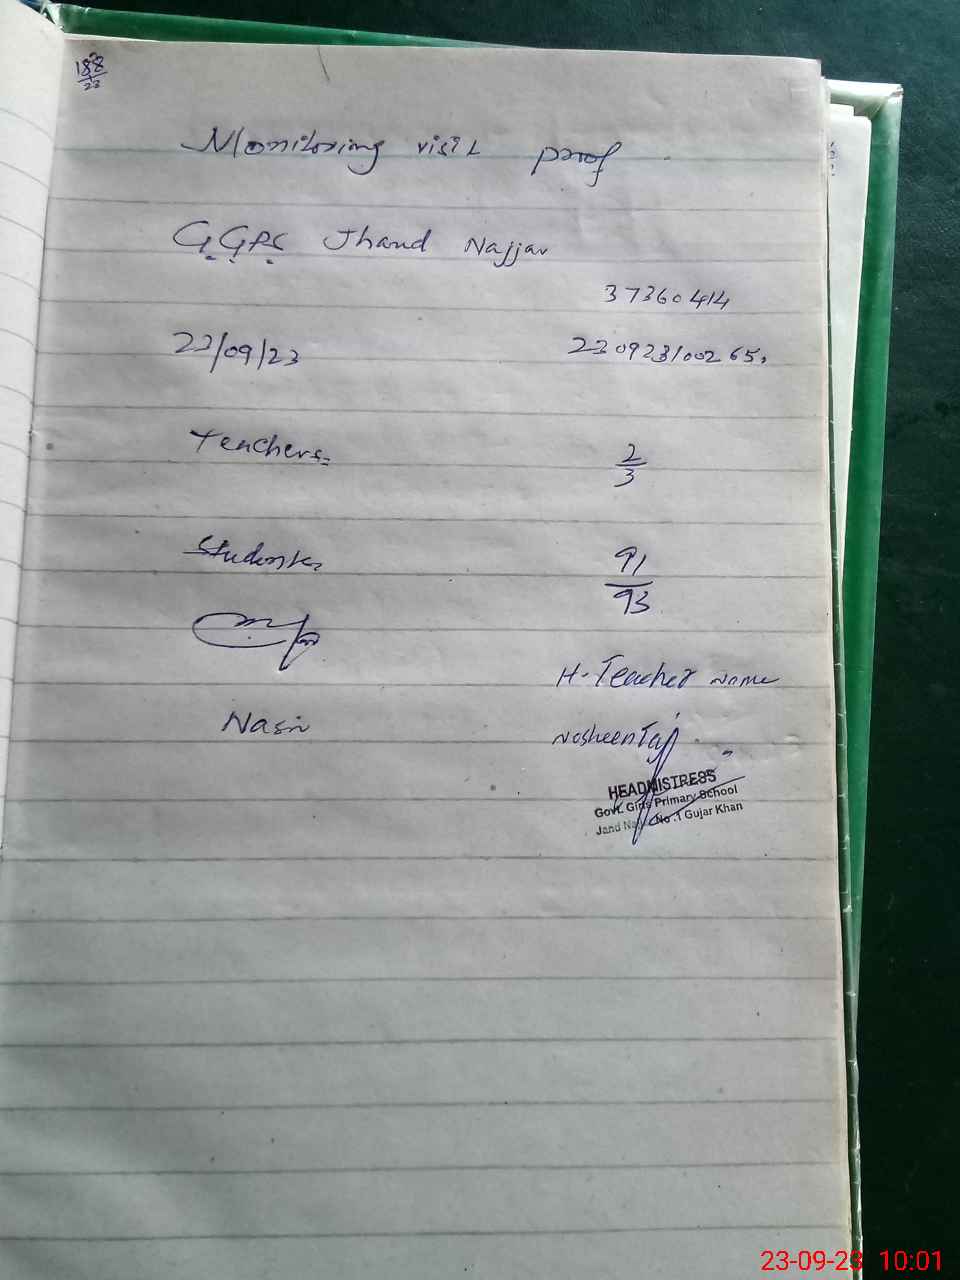 188
23
Monitoring visit proof
G.G.P.S Jhand Najjar
37360414
22/09/23 230923/00265
Teachers= 2/3
Students 91/93
H-Teacher Name
Nasir
Nosheen Taj
HEADMISTRESS
Govt. Girls Primary School
Jand No .1 Gujar Khan
23-09-23 10:01